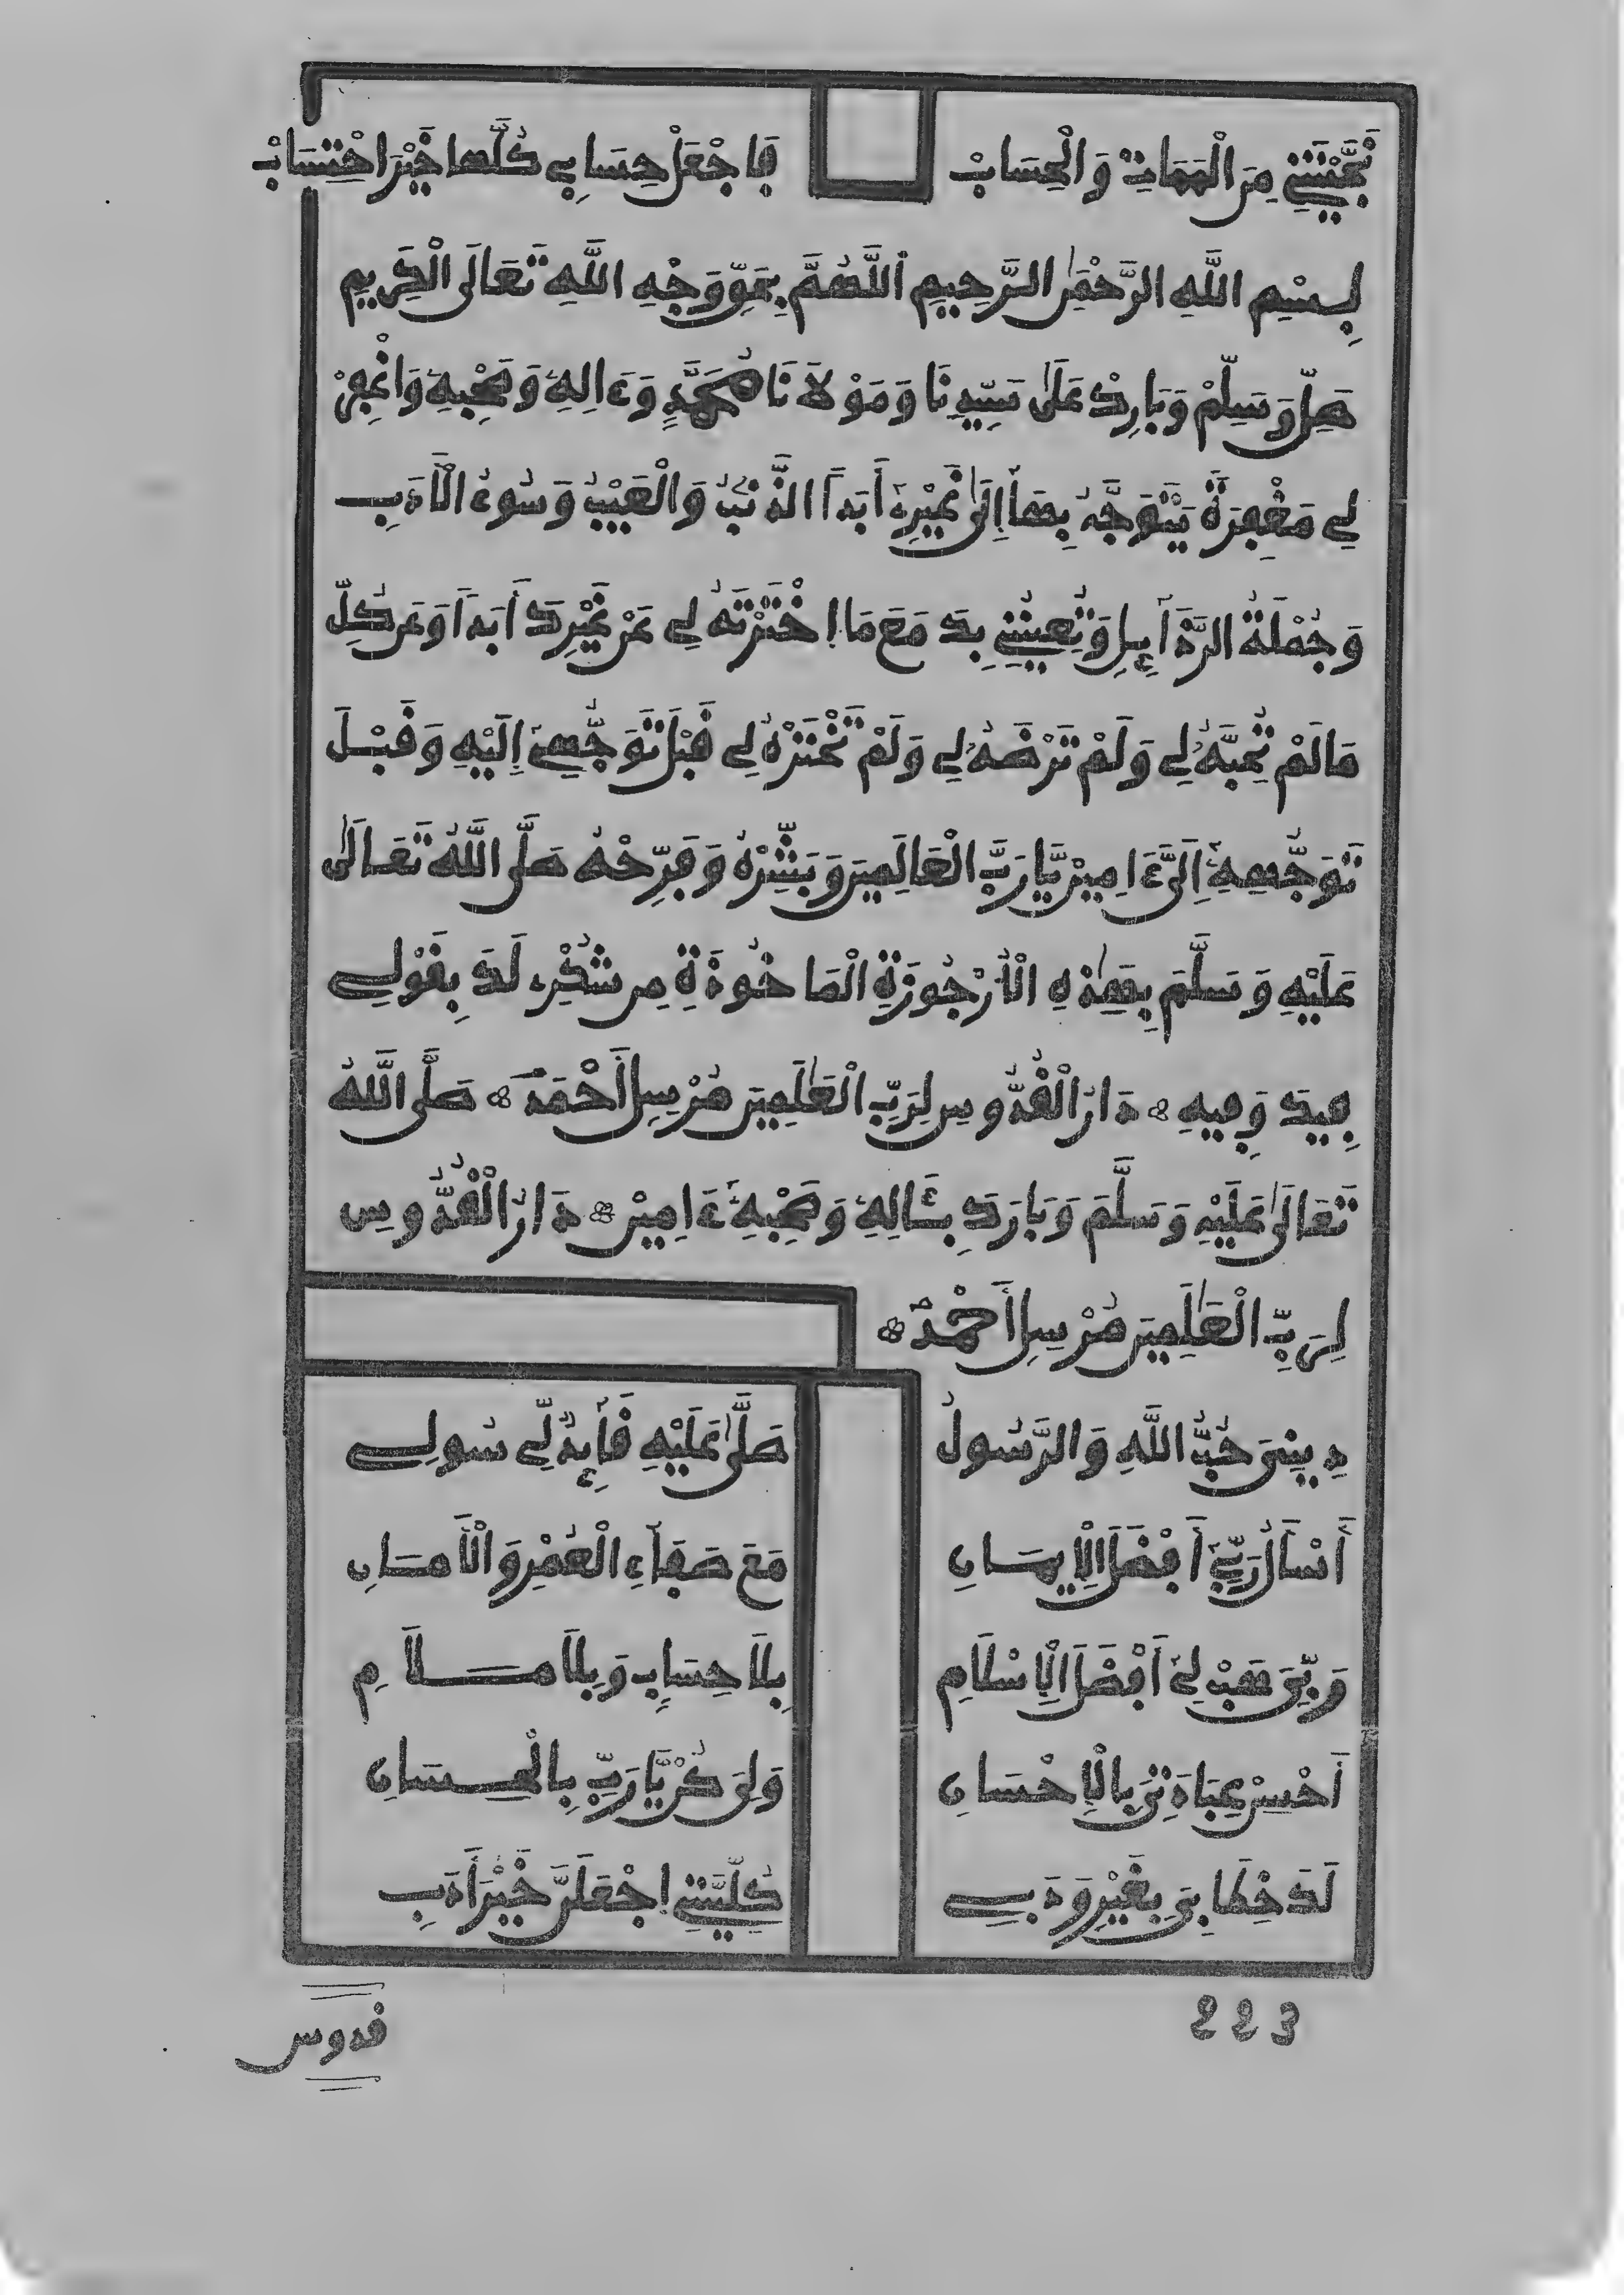 نَجَّيْتَنِي مِنَ الْهَمَّاتِ وَالْحِسَابْ فَاجْعَلْ حِسَابِي كُلَّهَا خَيْرَ احْتِسَابْ
بِسْمِ اللَّهِ الرَّحْمَٰنِ الرَّحِيمِ اللَّهُمَّ بِحَقِّ وَجْهِ اللَّهِ تَعَالَى الْكَرِيمِ
صَلِّ وَسَلِّمْ وَبَارِكْ عَلَىٰ سَيِّدِنَا وَمَوْلَانَا مُحَمَّدٍ وَءَالِهِ وَصَحْبِهِ وَاغْفِرْ
لِي مَغْفِرَةً يَتَوَجَّهُ بِهَا إِلَىٰ غَيْرِي أَبَداً الذَّنْبُ وَالْعَيْبُ وَسُوءُ الْأَدَبِ
وَجُمْلَةُ الرَّذَآئِلِ وَتُعِينُنِي بِكَ مَعَ مَا اخْتَرْتَهُ لِي عَنْ غَيْرِكَ أَبَداً وَعَن كُلِّ
مَا لَمْ تُحِبَّهُ لِي وَلَمْ تَرْضَهُ لِي وَلَمْ تَخْتَرْهُ لِي قَبْلَ تَوَجُّهِي إِلَيْهِ وَقَبْلَ
تَوَجُّهِهِ إِلَيَّ ءَامِينَ يَا رَبَّ الْعَالَمِينَ وَبَشِّرْهُ وَفَرِّحْهُ صَلَّى اللَّهُ تَعَالَىٰ
عَلَيْهِ وَسَلَّمَ بِهَٰذِهِ الْأُرْجُوزَةِ الْمَاخُوذَةِ مِن شُكْرِي لَكَ بِقَوْلِي
فِيكَ وَفِيهِ ۞ دَارُ الْقُدُّوسِ لِرَبِّ الْعَٰلَمِينَ مُرْسِلِ أَحْمَدَ ۞ صَلَّى اللَّهُ
تَعَالَىٰ عَلَيْهِ وَسَلَّمَ وَبَارَكَ بِـَٔالِهِ وَصَحْبِهِ ءَامِينْ ۞ دَارُ الْقُدُّوسِ
لِرَبِّ الْعَٰلَمِينَ مُرْسِلِ أَحْمَدَ ۞
دِينِيَ حُبُّ اللَّهِ وَالرَّسُولُ صَلَّىٰ عَلَيْهِ قَائِدٌ لِّي سُولِي
أَسْأَلُ رَبِّي أَفْضَلَ الْإِيمَانِ مَعَ صَفَآءِ الْعُمْرِ وَالْأَمَانِ
رَبِّيَ هَبْ لِي أَفْضَلَ الْإِسْلَامِ بِلَا حِسَابٍ وَبِلَا مَلَامِ
أَحْسِنْ عِبَادَتِيَ بِالْإِحْسَانِ وَلِيَ كُنْ يَا رَبِّ بِالْحِسَانِ
لَكَ خِطَابِيَ بِغَيْرِ وَدَبِي كُلِّيَّتِي اجْعَلَنَّ خَيْرَ أَدَبِ
قدوس
223